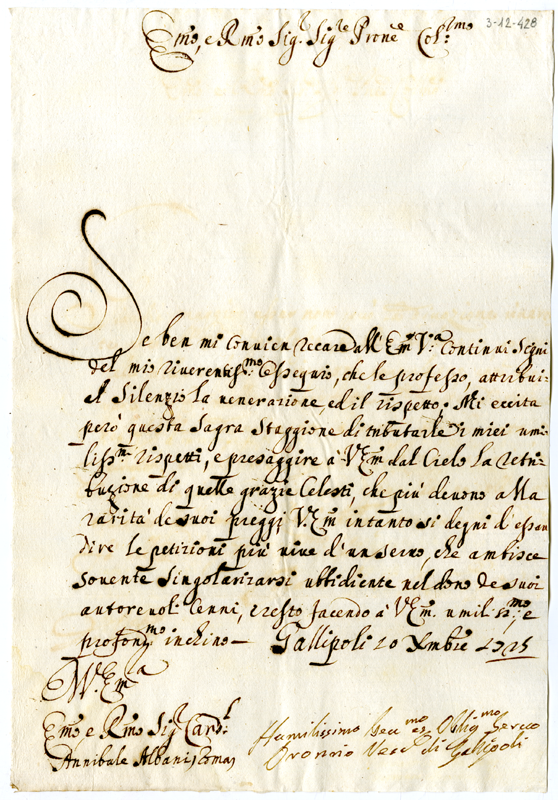 3-12-428
Em̃o, e Rmo Sigr. Sigre Prone Colmo
Se ben mi convien recare all' Em. Va. continui segni
del mio riverentissmo. ossequio, che le professo, attribui-
il silenzio la venerazione, ed il rispetto; Mi eccita
però questa sagra staggione di tributarle i miei umi-
lissmi. rispetti, e presaggire à V. Em dal Cielo la retri-
buzione di quelle grazie Celesti, che più devono alla
rarità de suoi preggi, V. Em intanto si degni d'essau
dire le petizioni più vive d'un servo, che ambisce
sovente singolarizarsi ubbidiente nel dono de suoi
autorevoli cenni, e resto facendo à V. Em. umiliss.mo, e
profond.mo inchino — Gallipoli 20 Xmbre 1725
Di V. Ema
Emo e Rmo Sigr Cardl:
Annibale Albani, Roma,
Humilissimo Devmo ed Obligmo Servo
Oronzio Vesco. di Gallipoli